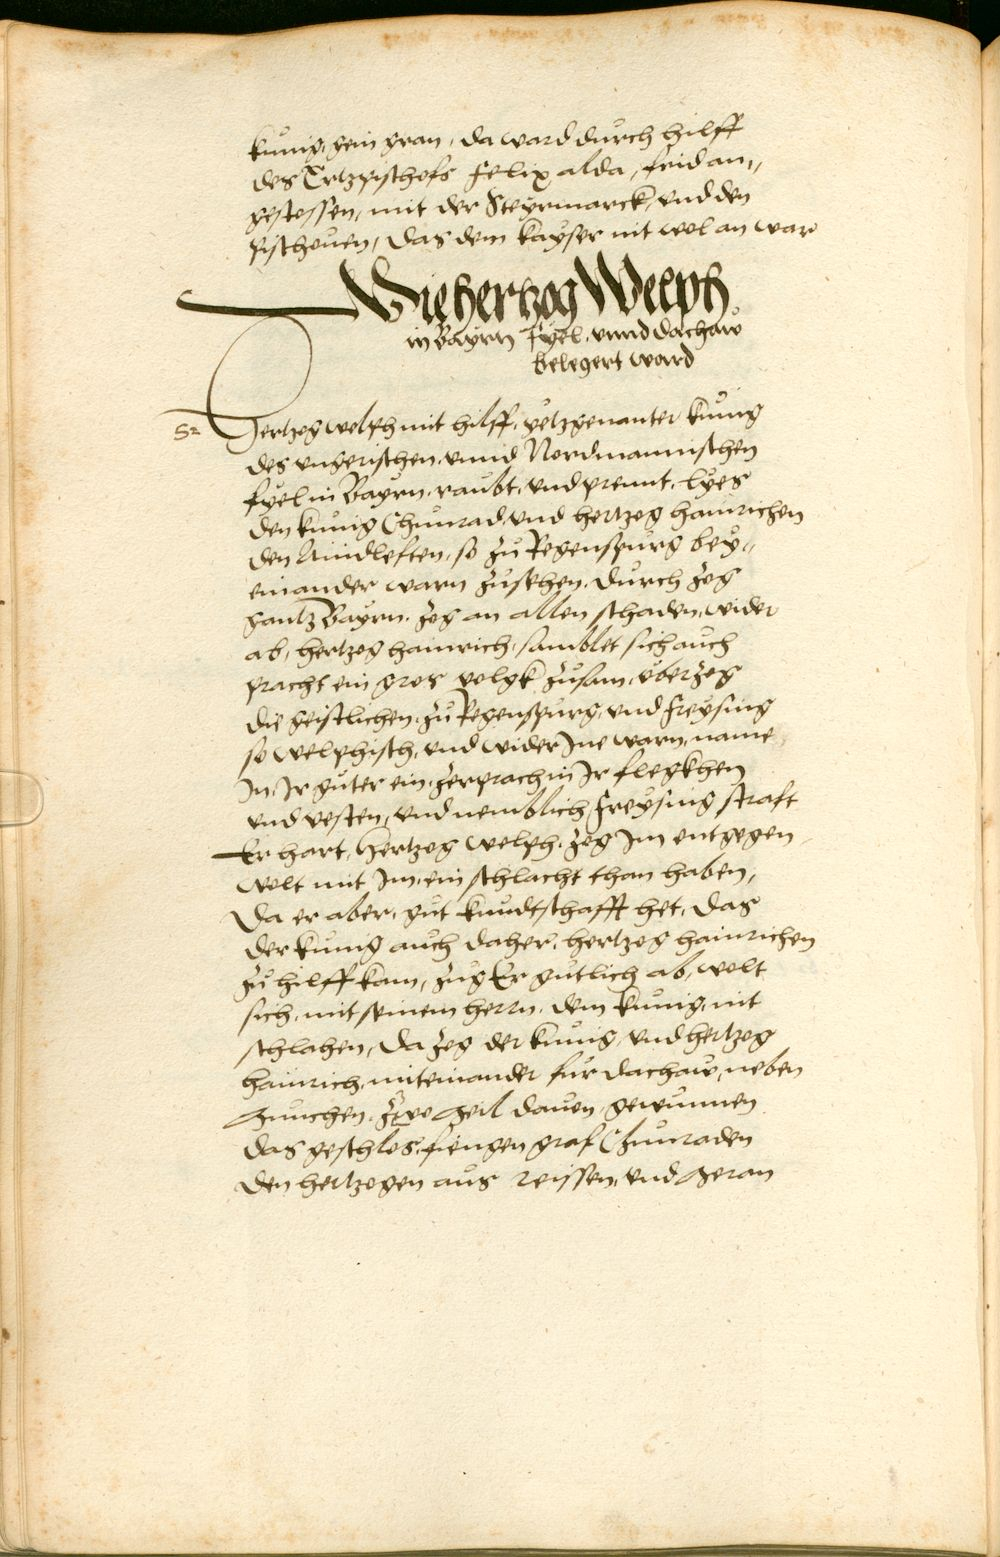 kunig, gein gran, da ward durch hilff
des Ertzpischofs Felix alda, frid an„
gestossen, mit der Steyrmarck, vnd den
pischouen, das dem kayser nit wol an war
Wie hertzog Welph
in Bayrn fyel, vnnd dachaw
belegert ward
Hertzog welph mit hilff, yetzgenanter kunig
des vngerischen, vnnd Nordmannischen
fyel in Bayrn, raubt, vnd prennt, lyes
den kunig Chunrad, vnd hertzog hainrichen
den Aindleften, so zu Regenspurg bey„
einander warn zusehen, durch zog
gantz Bayrn, zog an allen schaden, wider
ab, hertzog hainrich, samblet sich auch
pracht ein gros volgk zusam, vberzog
die geistlichen, zu Regenspurg, vnd freysing
so welphisch, vnd wider Ine warn, name
In, Ir guter ein, zerprach in Ir flegkhen
vnd vesten, vnd nemblich freysing straft
Er hart, Hertzog welph, zog Im entgegen
wolt mit Im, ein schlacht than haben,
Da er aber, gut kundtschafft het, das
der kunig auch daher, hertzog hainrichen
zu hilff kam, zug Er gutlich ab, wolt
sich, mit seinem herrn, dem kunig, nit
schlahen, Da zog der kunig, vnd hertzog
hainrich, miteinander fur dachaw, neben
Munchen, zwo Meil dauon, gewunnen
das geschlos, fiengen graf Chunraden
den hertzogen aus reissen, vnd Meran